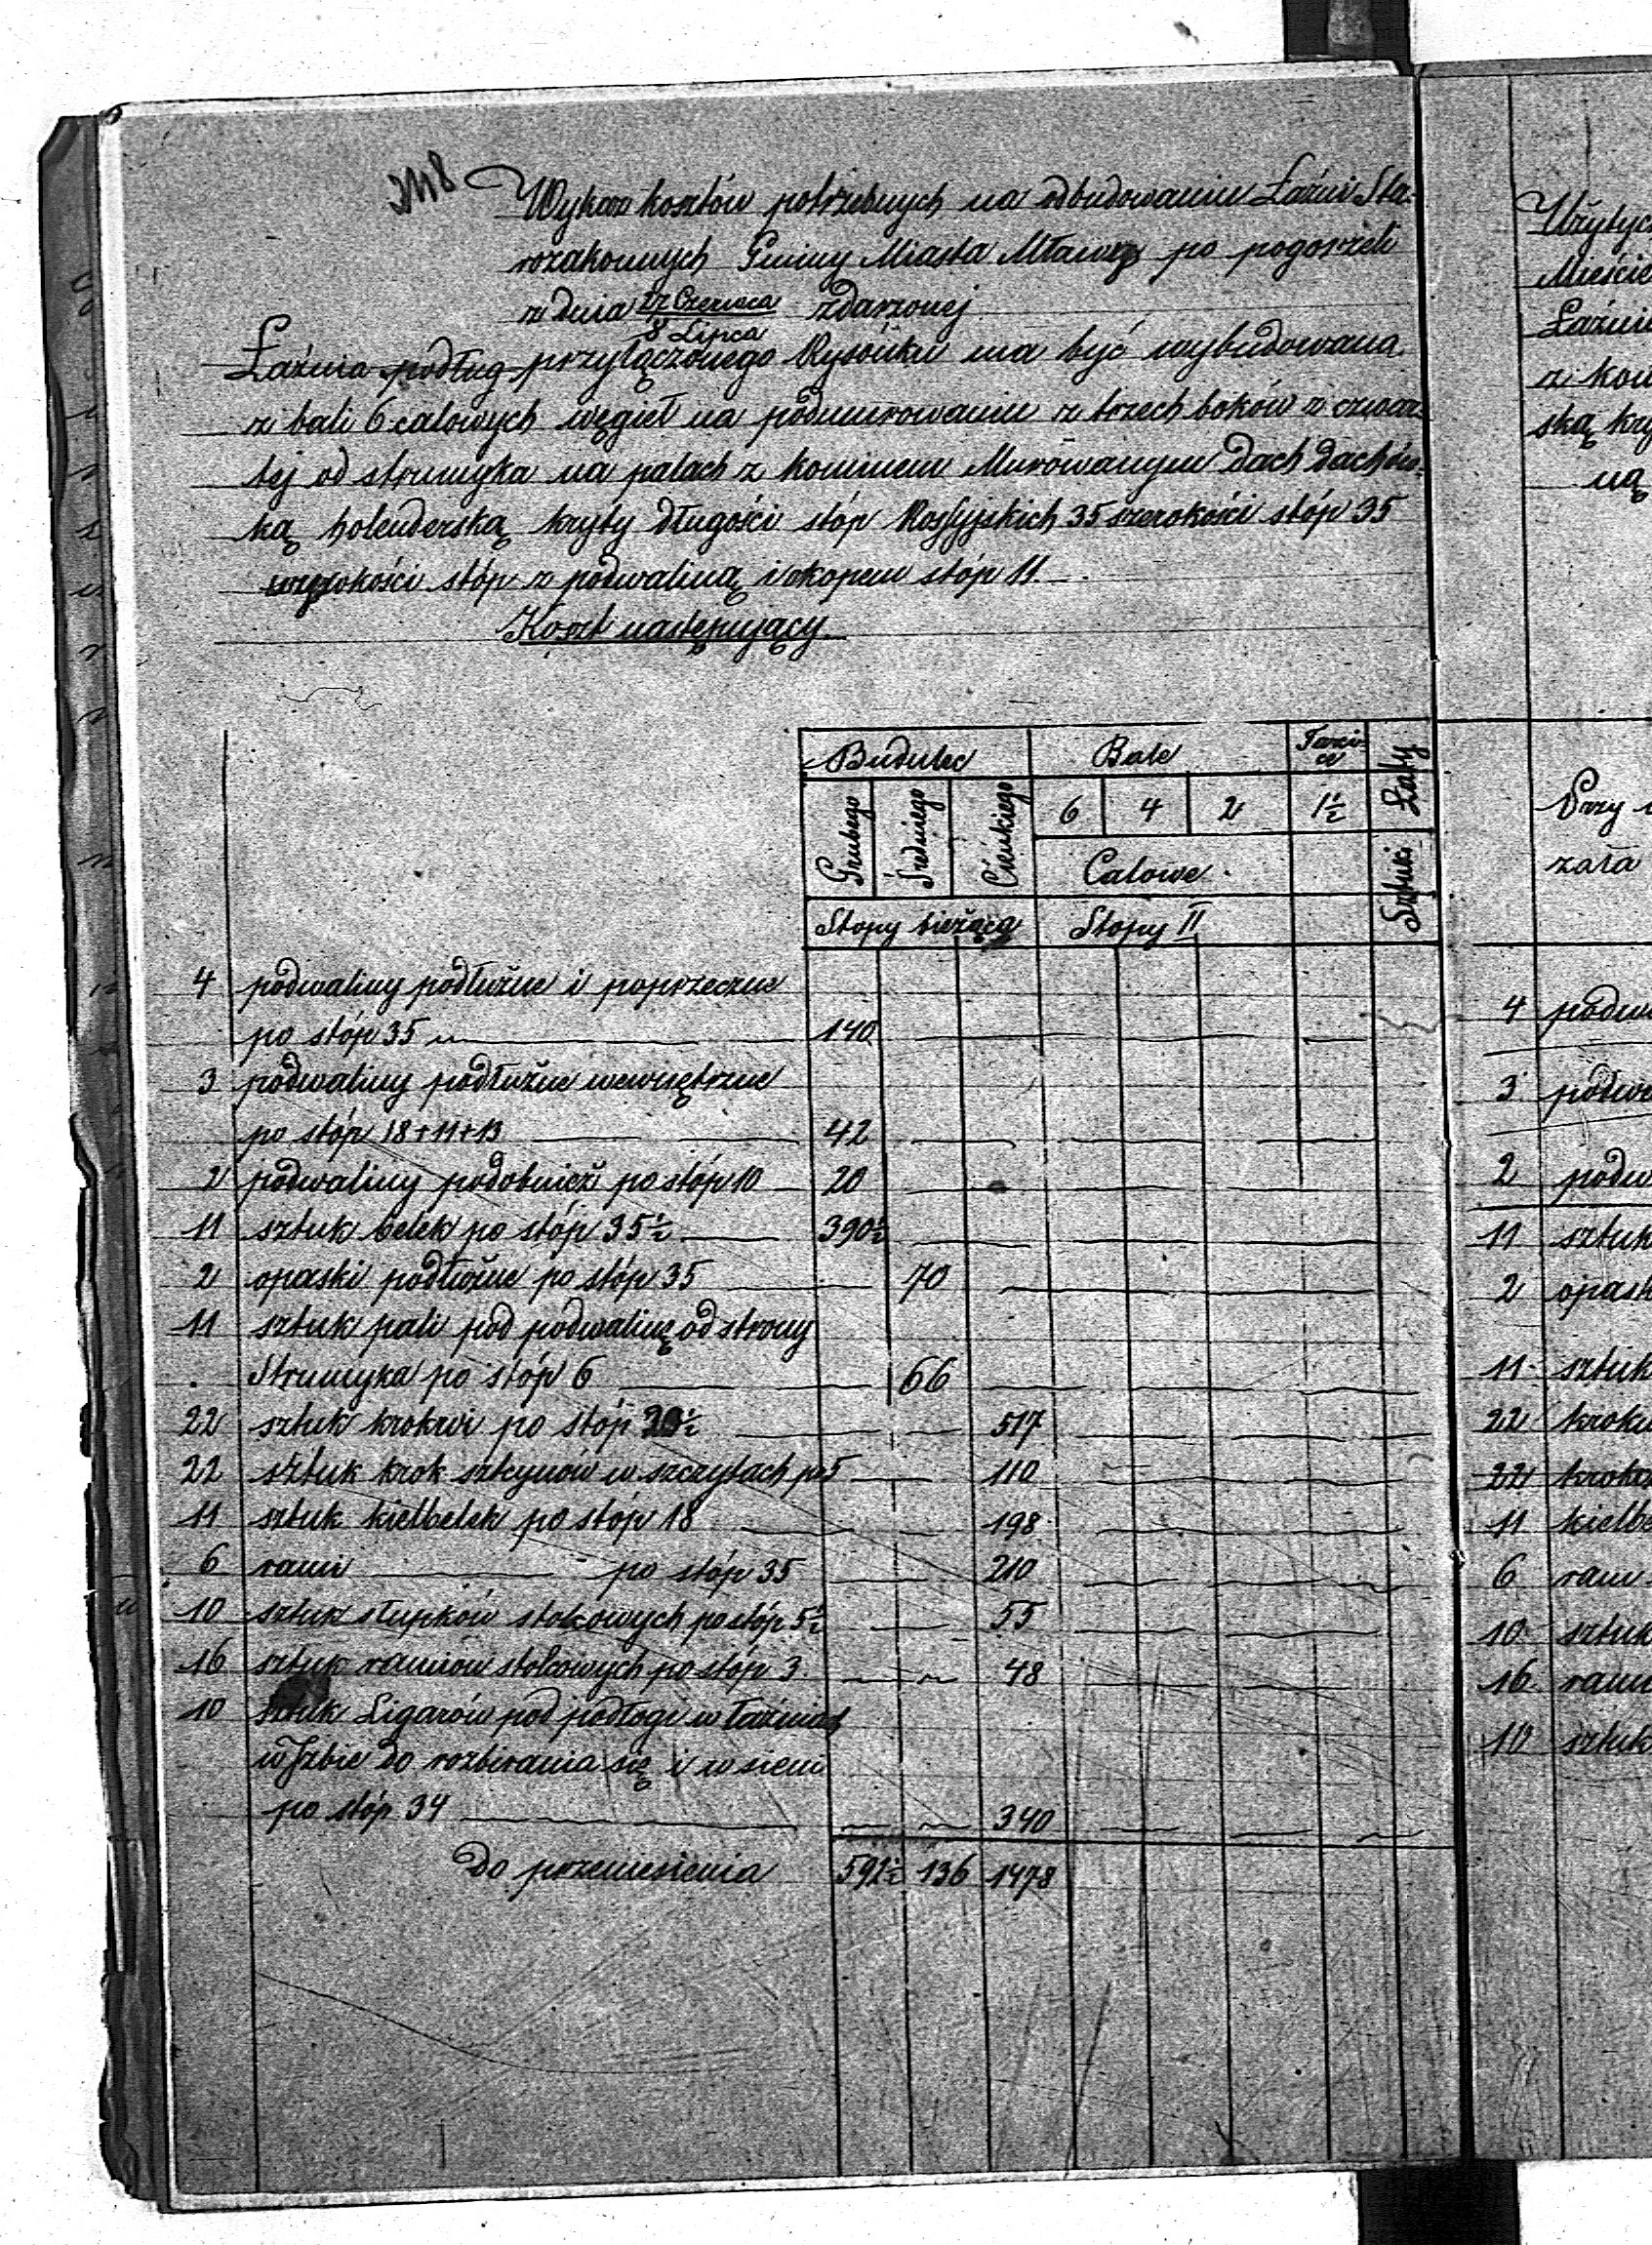 Wykaz kosztów potrzebnych na odbudowanie Łaźni Sta-
rozakonnych Gminy Miasta Mławy po pogorzeli
z dnia 27 Czerwca zdarzonej
8 Lipca
Łaźnia podług przyłączonego Rysónku ma być wybudowana
z bali 6 calowych węgieł na podmurowaniu z trzech boków z czwar-
tej od strumyka na palach z kominem Murowanym Dach Dachów-
ką holenderską kryty długości stóp Rossyjskich 35 szerokości stóp 35
wysokości stóp z podwaliną i okapem stóp 11.
Koszt następujący
Budulec Bale Tarci-
ce Łaty
Grubego Średniego Cieńkiego 6 4 2 1½
Calowe Sztuki
Stopy bieżące Stopy II
4 podwaliny podłużne i poprzeczne
po stóp 35 140
3 podwaliny podłużne wewnętrzne
po stóp 18+11+13 42
2 podwaliny podobnież po stóp 10 20
11 sztuk belek po stóp 35½ 390½
2 opaski podłużne po stóp 35 70
11 sztuk pali pod podwalinę od strony
Strumyka po stóp 6 66
22 sztuk krokwi po stóp 23½ 517
22 sztuk krok sztycnów w szczytach po 5 110
11 sztuk kielbelek po stóp 18 198
6 ram po stóp 35 210
10 sztuk słupków stolcowych po stóp 5½ 55
16 sztuk ramiów stolcowych po stóp 3. 48
10 sztuk Ligarów pod podłogi w łaźniach
w Izbie do rozbirania się i w sieni
po stóp 34 340
Do przeniesienia 592½ 136 1478
Użytych
Mieście
Łaźni
z kom
ską kry
ną
Przy
zała
4 podwa
3 podwa
2 podw
11 sztuk
2 opask
11 sztuk
22 krokw
22 krok
11 kielbe
6 ram
10 sztuk
16 rami
10 sztuk